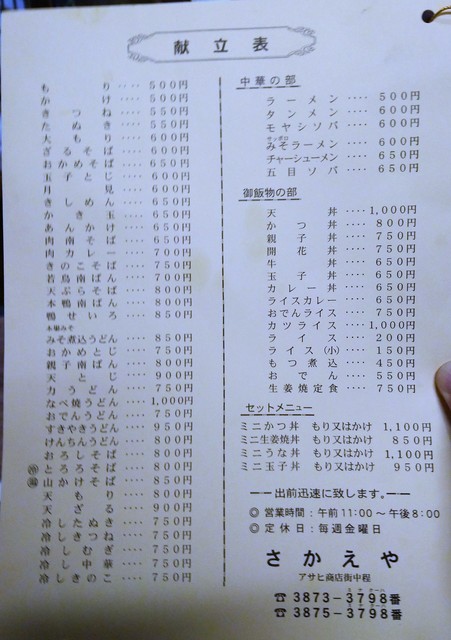 献立表
もり‥‥500円
かけ‥‥500円
きつね‥‥550円
たぬき‥‥550円
大もり‥‥600円
ざるそば‥‥600円
おかめそば‥‥650円
玉子とじ‥‥600円
月見‥‥600円
きしめん‥‥650円
かき玉‥‥650円
あんかけ‥‥650円
肉南そば‥‥650円
肉カレー‥‥700円
きのこそば‥‥750円
若鳥南ばん‥‥700円
天ぷらそば‥‥750円
本鴨南ばん‥‥800円
鴨せいろ‥‥850円
みそ煮込うどん‥‥850円
おかめとじ‥‥750円
親子南ばん‥‥800円
天とじ‥‥900円
力うどん‥‥750円
なべ焼うどん‥‥1,000円
おでんうどん‥‥750円
すきやきうどん‥‥950円
けんちんうどん‥‥800円
おろしそば‥‥750円
とろろそば‥‥750円
山かけそば‥‥850円
天もり‥‥800円
天ざる‥‥900円
冷したぬき‥‥750円
冷しきつね‥‥750円
冷しむぎ‥‥750円
冷し中華‥‥750円
冷しきのこ‥‥750円
中華の部
ラーメン‥‥500円
タンメン‥‥600円
モヤシソバ‥‥600円
サッポロ
みそラーメン‥‥600円
チャーシューメン‥‥650円
五目ソバ‥‥650円
御飯物の部
天丼‥‥1,000円
かつ丼‥‥800円
親子丼‥‥750円
開花丼‥‥750円
牛丼‥‥650円
玉子丼‥‥650円
カレー丼‥‥650円
ライスカレー‥‥650円
おでんライス‥‥750円
カツライス‥‥1,000円
ライス‥‥200円
ライス(小)‥‥150円
もつ煮込‥‥450円
おでん‥‥550円
生姜焼定食‥‥750円
セットメニュー
ミニかつ丼 もり又はかけ 1,100円
ミニ生姜焼丼 もり又はかけ 850円
ミニうな丼 もり又はかけ 1,100円
ミニ玉子丼 もり又はかけ 950円
――出前迅速に致します。――
◎営業時間：午前11:00〜午後8:00
◎定休日：毎週金曜日
さかえや
アサヒ商店街中程
☎3873−3798番
☎3875−3798番